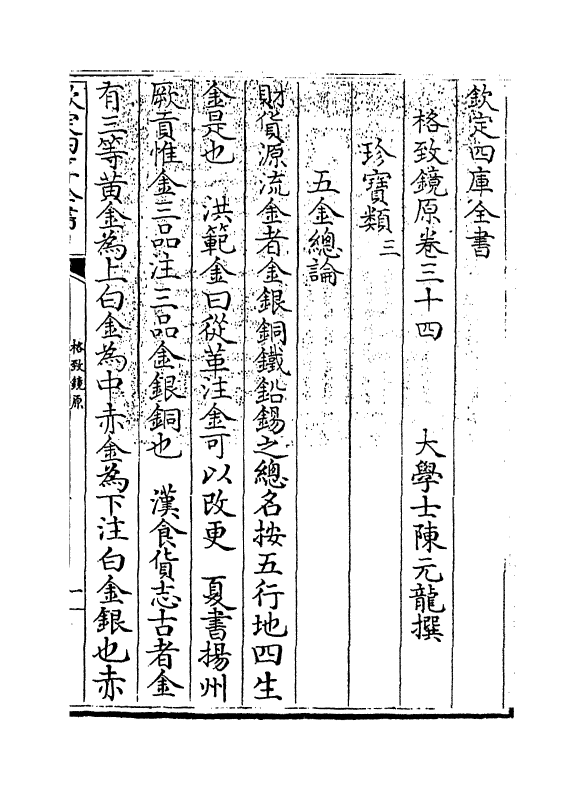 欽定四庫全書
格致鏡原卷三十四
大學士陳元龍撰
珍寶類三
五金總論
財貨源流金者金銀銅鐵鉛錫之總名按五行地四生
金是也　洪範金曰從革注金可以改更　夏書揚州
厥貢惟金三品注三品金銀銅也　漢食貨志古者金
有三等黃金為上白金為中赤金為下注白金銀也赤
欽定四庫全書
格致鏡原
一